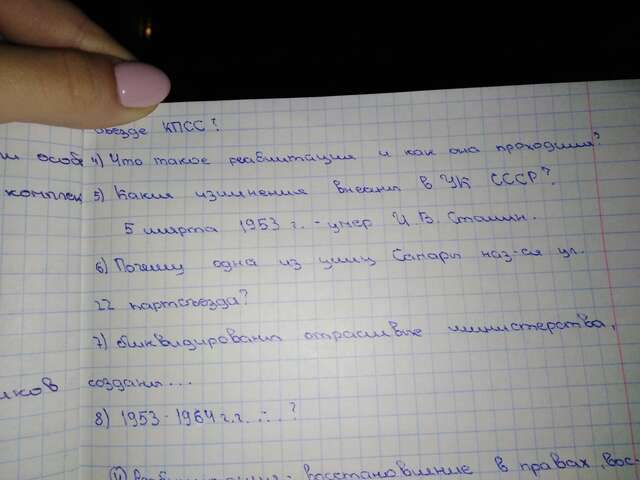 ъезде КПСС?
и особ
4) Что такое реабилитация и как она проходила?
комплек
5) Какие изменения внесли в УК СССР?
5 марта 1953 г. - умер И. В. Сталин.
6) Почему одна из улиц Самары наз-ся ул.
22 партсъезда?
7) Ликвидированы отраслевые министерства,
иков
созданы...
8) 1953 - 1964 г.г. ... ?
4) - восстановление в правах, вос-